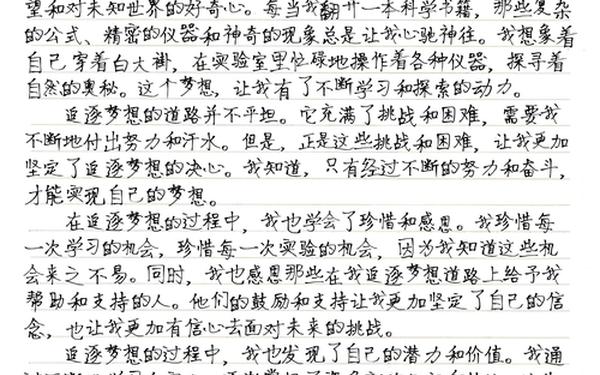 望和对未知世界的好奇心。每当我翻开一本科学书籍，那些复杂
的公式、精密的仪器和神奇的现象总是让我心驰神往。我想象着
自己穿着白大褂，在实验室里忙碌地操作着各种仪器，探寻着
自然的奥秘。这个梦想，让我有了不断学习和探索的动力。
追逐梦想的道路并不平坦。它充满了挑战和困难，需要我
不断地付出努力和汗水。但是，正是这些挑战和困难，让我更加
坚定了追逐梦想的决心。我知道，只有经过不断的努力和奋斗，
才能实现自己的梦想。
在追逐梦想的过程中，我也学会了珍惜和感恩。我珍惜每
一次学习的机会，珍惜每一次实验的机会，因为我知道这些机
会来之不易。同时，我也感恩那些在我追逐梦想道路上给予我
帮助和支持的人。他们的鼓励和支持让我更加坚定了自己的信
念，也让我更加有信心去面对未来的挑战。
追逐梦想的过程中，我也发现了自己的潜力和价值。我通